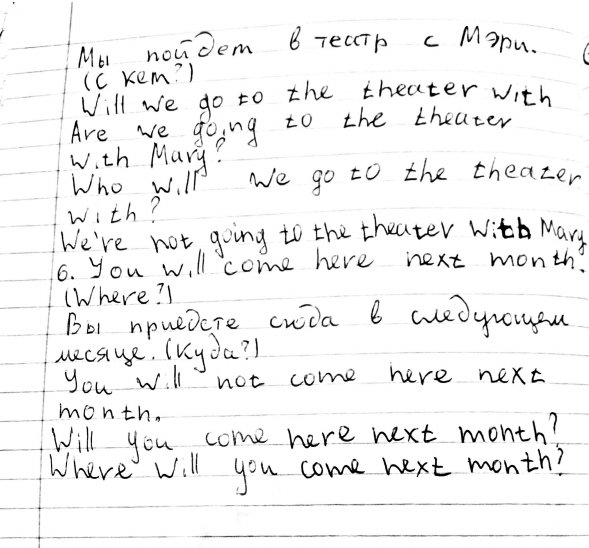 Мы пойдем в театр с Мэри.
(С кем?)
Will we go to the theater with
Are we going to the theater
with Mary?
Who will we go to the theater
with?
We're not going to the theater with Mary
6. You will come here next month.
(Where?)
Вы приедете сюда в следующем
месяце. (Куда?)
You will not come here next
month.
Will you come here next month?
Where will you come next month?